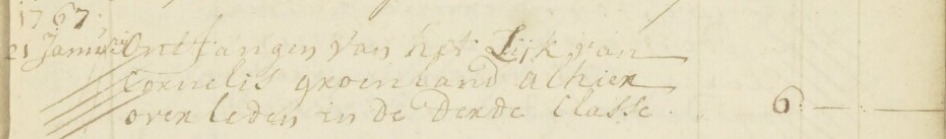 1767
21 Januarij Ontfangen van het Lijk van
Cornelis groenland alhier
overleden in de derde Classe. 6.—.—